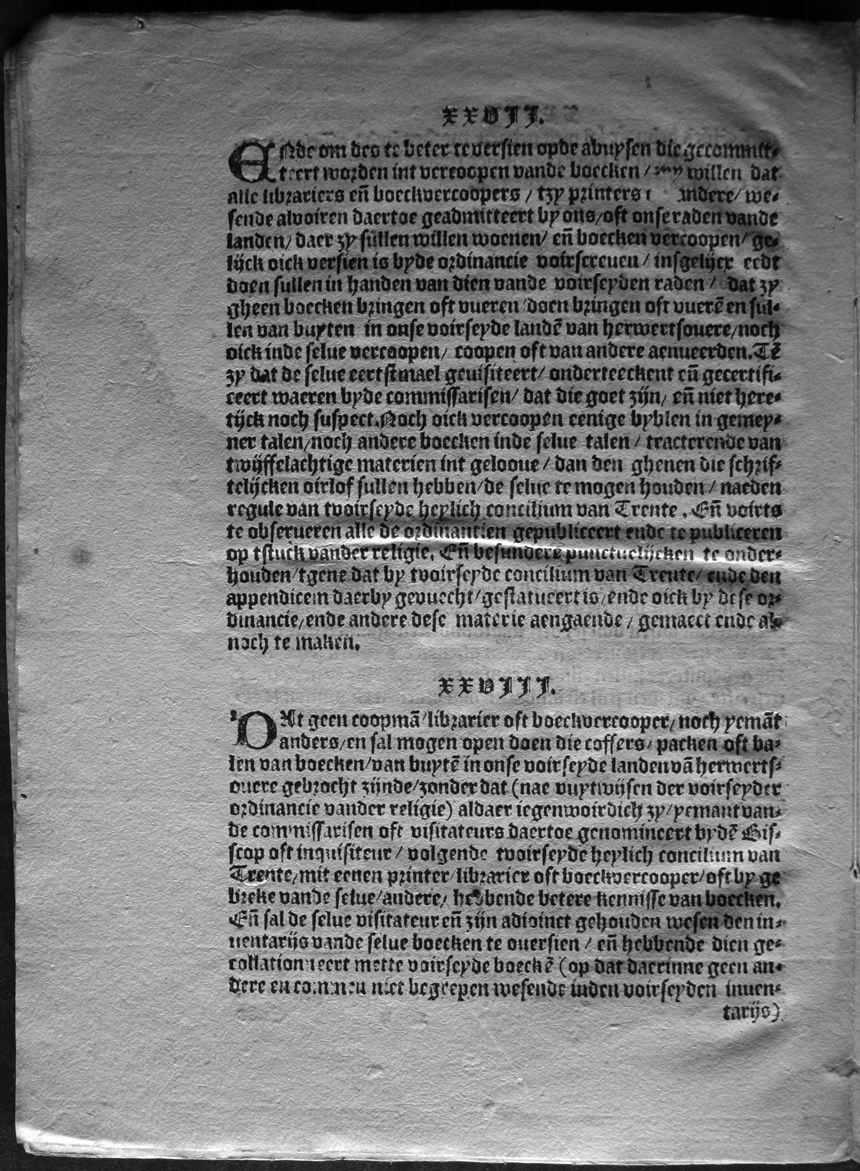 XXVII.
ENde om des te beter te versien opde abuysen die gecommit-
teert worden int vercoopen vande boecken / willen dat
alle librariers eñ boeckvercoopers / tzy printers andere / we-
sende alvoiren daertoe geadmitteert by ons / oft onse raden vande
landen / daer zy sullen willen woenen / eñ boecken vercoopen / ge-
lijck oick versien is byde ordinancie voirscreuen / insgelijcx eedt
doen sullen in handen van dien vande voirseyden raden / dat zy
gheen boecken bringen oft vueren / doen bringen oft vuerē en sul-
len van buyten in onse voirseyde landē van herwertsouere / noch
oick inde selue vercoopen / coopen oft van andere aenueerden. Tē
zy dat de selue eertstmael geuisiteert / onderteeckent eñ gecertifi-
ceert waeren byde commissarisen / dat die goet zijn / eñ niet here-
tijck noch suspect. Noch oick vercoopen eenige byblen in gemey-
ner talen / noch andere boecken inde selue talen / tracterende van
twijffelachtige materien int gelooue / dan den ghenen die schrif-
telijcken oirlof sullen hebben / de selue te mogen houden / naeden
regule van tvoirseyde heylich concilium van Trente. Eñ voirts
te obserueren alle de ordinantien gepubliceert ende te publiceren
op tstuck vander religie. Eñ besundere punctuelijcken te onder-
houden / tgene dat by tvoirseyde concilium van Trente / ende den
appendicem daerby geuuecht / gestatueert is / ende oick by dese or-
dinancie / ende andere dese materie aengaende / gemaect ende als
noch te maken.
XXVIII.
DAt geen coopmā / librarier oft boeckvercooper / noch yemāt
anders / en sal mogen open doen die coffers / packen oft ba-
len van boecken / van buytē in onse voirseyde landen vā herwerts-
ouere gebrocht zijnde / zonder dat (nae vuytwijsen der voirseyder
ordinancie vander religie) aldaer iegenwoirdich zy / yemant van-
de commissarisen oft visitateurs daertoe genomineert bydē Bis-
scop oft inquisiteur / volgende tvoirseyde heylich concilium van
Trente / mit eenen printer / librarier oft boeckvercooper / oft by ge
breke vande selue / andere / hebbende betere kennisse van boecken.
Eñ sal de selue visitateur eñ zijn adioinct gehouden wesen den in-
uentarijs vande selue boecken te ouersien / eñ hebbende dien ge-
collationneert mette voirseyde boeckē (op dat daerinne geen an-
dere en commen niet begrepen wesende inden voirseyden inuen-
tarijs)